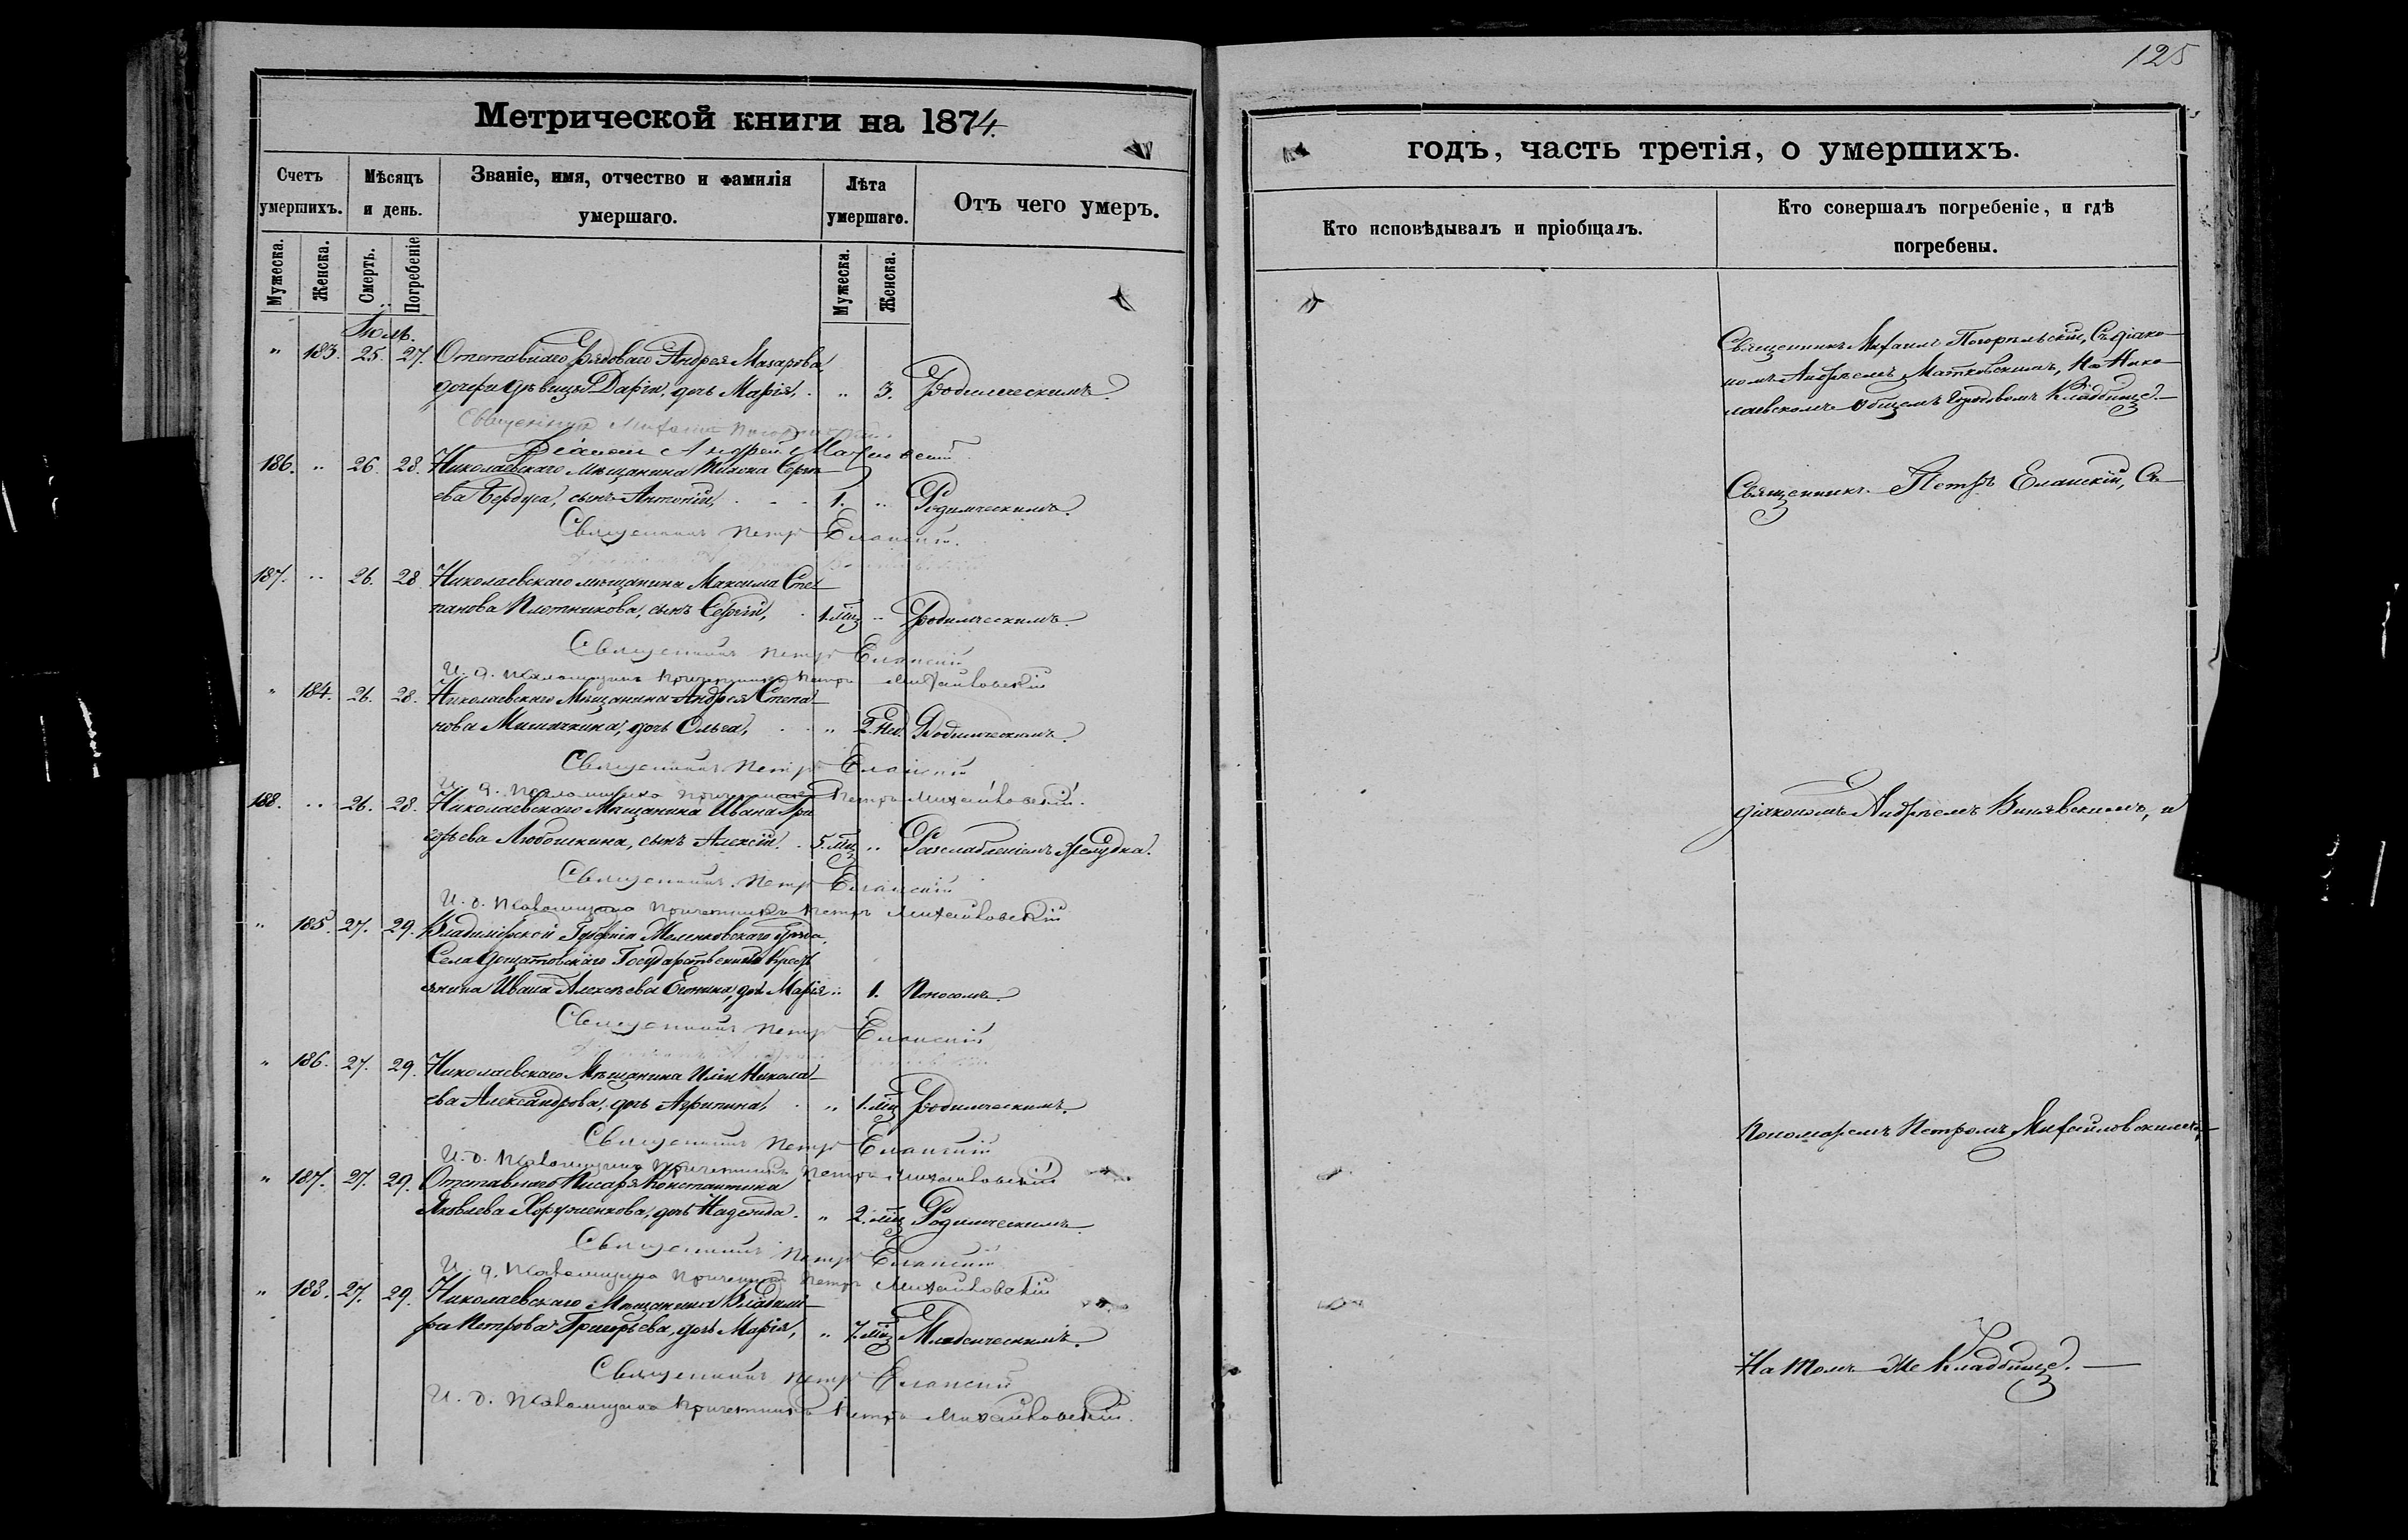 125
Метрической книги на 1874.
годъ, часть третія, о умершихъ.
Счетъ умершихъ.
Мѣсяцъ и день.
Званіе, имя, отчество и фамилія умершаго.
Лѣта умершаго.
Отъ чего умеръ.
Кто исповѣдывалъ и пріобщалъ.
Кто совершалъ погребеніе, и гдѣ погребены.
Мужеска. Женска. Смерть. Погребеніе Мужеска. Женска.
Іюль.
" 183. 25. 27. Отставнаго Рядоваго Андрея Макарова,
дочери дѣвицы Даріи, дочь Марія, " 3. Родимческимъ.
Священникъ Михаилъ
Діаконъ Андрей
Священникъ Михаилъ Погорѣльскій, Съ діако-
номъ Андреемъ Матковскимъ, На Нико-
лаевскомъ Общемъ Городовомъ Кладбище.
186. " 26. 28. Николаевскаго Мѣщанина
сынъ Антоній, 1. " Родимческимъ.
Священникъ Петръ Еланскій.
Священникъ Петръ Еланскій, Съ
187. " 26. 28. Николаевскаго мѣщанина Максима Сте-
панова Плотникова, сынъ Сергій, 1. мц " Родимческимъ.
Священникъ Петръ Еланскій
И. д. Псаломщика Причетникъ Петръ Михайловскій
" 184. 26. 28. Николаевскаго Мѣщанина Андрея Степа-
нова дочь Ольга, " 2. нед. Родимческимъ.
Священникъ Петръ Еланскій
И. д. Псаломщика Причетникъ Петръ Михайловскій.
188. " 26. 28. Николаевскаго Мѣщанина Ивана Гри
горьева Любошкина, сынъ Алексій. 5. мц " Разслабленіемъ желудка.
Священникъ Петръ Еланскій
И. д. Псаломщика Причетникъ Петръ Михайловскій
діакономъ Андреемъ и
" 185. 27. 29. Владимірской Губерніи Меленковскаго уѣзда,
Села Государственнаго Крестъ
янина Ивана Алексѣева дочь Марія " 1. Поносомъ.
Священникъ Петръ Еланскій
" 186. 27. 29. Николаевскаго Мѣщанина Иліи Никола-
ева Александрова, дочь Агрипина, " 1. мц Родимческимъ.
Священникъ Петръ Еланскій
И. д. Псаломщика Причетникъ Петръ Михайловскій
Пономаремъ Петромъ Михайловскимъ,
" 187. 27. 29. Отставнаго Писаря Константина
Яковлева дочь Надежда. " 2. мц Родимческимъ
Священникъ Петръ Еланскій
И. д. Псаломщика Причетникъ Петръ Михайловскій
" 188. 27. 29. Николаевскаго Мѣщанина Владимі-
ра Петрова Григорьева, дочь Марія, " 7. мц Младенческимъ.
Священникъ Петръ Еланскій
И. д. Псаломщика Причетникъ Петръ Михайловскій.
На томъ же Кладбище.